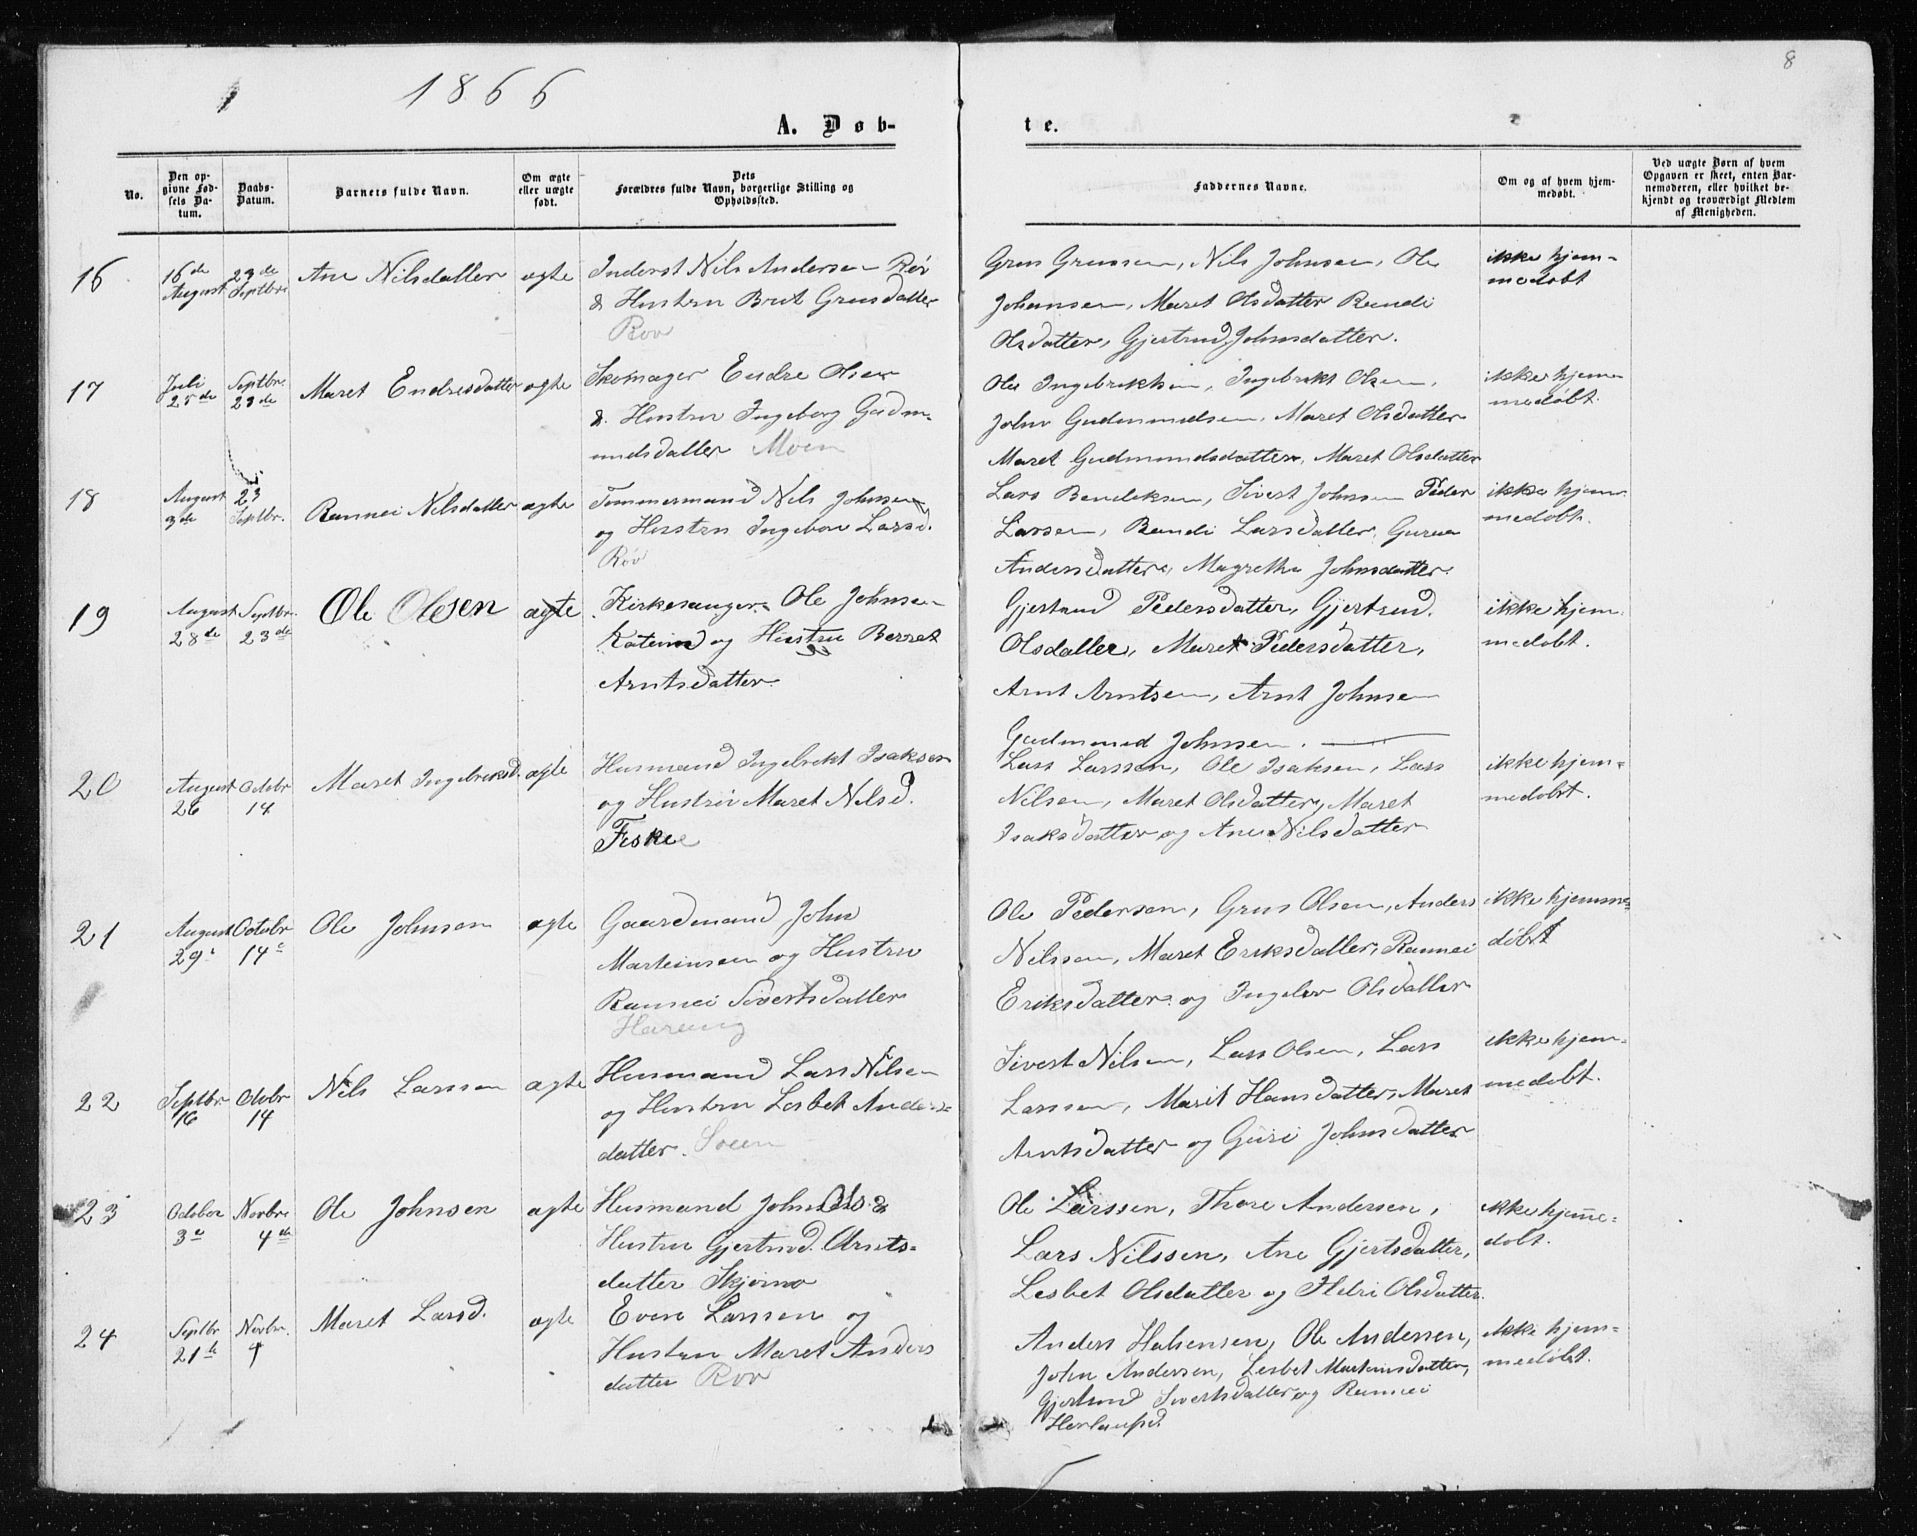 8
1866
A. Døb-
te.
No.
Den op-
givne Fød-
sels Da-
tum.
Daabs-
Datum.
Barnets fulde Navn.
Om ægte
eller uægte
født.
Dets
Forældres fulde Navn, borgerlige Stilling og
Opholdssted.
Faddernes Navne.
Om og af hvem hjem-
medøbt.
Ved uægte Børn af hvem
Opgaven er skeet, enten Bar-
nemoderen, eller hvilket be-
kjendt og troværdigt Medlem
af Menigheden.
16
16de
August
23de
Septbr.
Ane Nilsdatter
ægte
Inderst Nils Andersen Röv
& Hustru Brit Grusdatter
Rov
Grus Grussen, Nils Johnsen, Ole
Johansen, Maret Olsdatter Randi
Olsdatter, Gjertrud Johnsdatter.
ikke hjem-
medøbt
17
Juli
25de
Septbr.
23de
Maret Endresdatter
ægte
Skomager Endre Olsen
& Hustru Ingeborg Gudm-
undsdatter Moen
Ole Ingebriktsen, Ingebrikt Olsen,
John Gudmundsen, Maret Olsdatter
Maret Gudmundsdatter, Maret Olsdatter
ikke hjem-
medøbt.
18
August
3de
23
Septbr.
Rannei Nilsdatter
ægte
Tømmermand Nils Johnsen
og Hustru Ingebor Larsd.
Röv
Lars Bendiksen, Sivert Johnsen Peder
Larsen, Randi Larsdatter, Gurua
Andersdatter, Magrethe Johnsdatter.
ikke hjem-
medøbt.
19
August
28de
Septbr.
23de
Ole Olesen
ægte
Kirkesanger Ole Johnsen
og Hustru Berret
Arntsdatter
Gjertrud Pedersdatter, Gjertrud
Olsdatter, Maret Pedersdatter,
Arnt Arntsen, Arnt Johnsen
Gudmund Johnsen.
ikke hjem-
medøbt.
20
August
26
Octobr
14
Maret Ingebriktsd.
ægte
Husmand Ingebrikt Isaksen
og Hustru Maret Nilsd.
Fiske
Lars Larssen, Ole Isaksen, Lars
Nilsen, Maret Olsdatter, Maret
Isaksdatter og Ane Nilsdatter
ikke hjem-
medøbt.
21
August
29
Octobr
14
Ole Johnsen
ægte
Gaardmand John
Marteinsen og Hustru
Rannei Sivertsdatter
Hareng
Ole Pedersen, Grus Olsen, Anders
Nilssen, Maret Eriksdatter, Rannei
Eriksdatter og Ingebor Olsdatter
ikke hjemme-
døbt
22
Septbr
16
Octbr
14
Nils Larssen
ægte
Husmand Lars Nilsen
og Hustru Lesbet Anders-
datter. Soeen
Sivert Nilsen, Lars Olsen, Lars
Larssen, Marit Hansdatter, Maret
Arntsdatter og Guri Johnsdatter
ikke hjem-
medøbt.
23
October
3
Novbr
4de
Ole Johnsen
ægte
Husmand John Ols. &
Hustru Gjertrud Arnts-
datter Skjermo
Ole Larssen, Thore Andersen,
Lars Nilssen, Ane Gjertsdatter,
Lesbet Olsdatter og Ildri Olsdatter.
ikke hjem̄e-
døbt.
24
Septbr
21
Novbr.
4
Maret Larsd.
ægte
Even Larssen og
Hustru Maret Anders
datter Röv
Anders Halsensen, Ole Andersen,
John Andersen, Lesbet Marteinsdatter,
Gjertrud Sivertsdatter og Rannei
Herlaupsd.
ikke hjem-
medøbt.